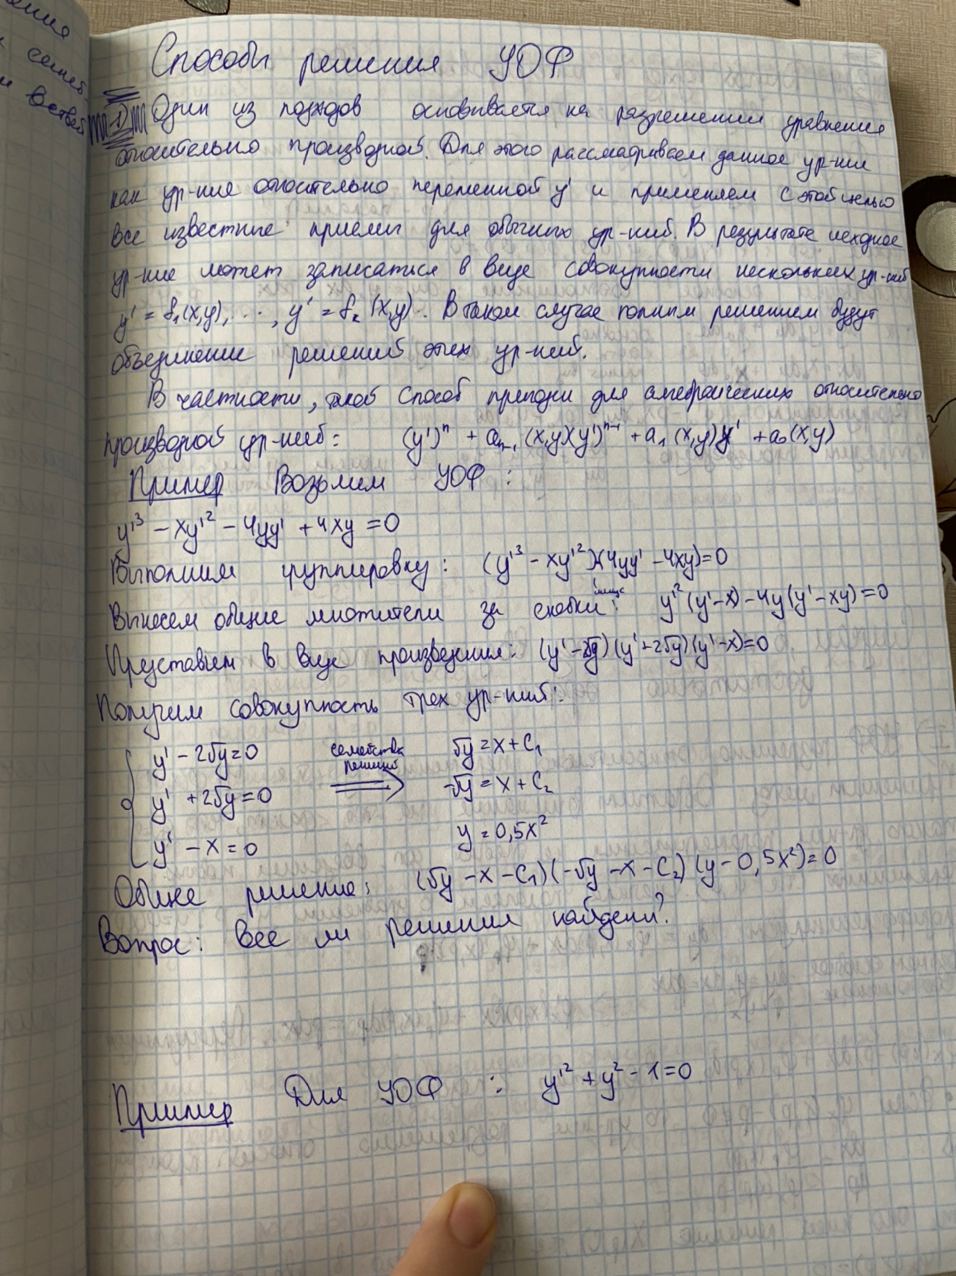 ения
Способы решения УОФ
1) Один из подходов основывается на разрешении уравнения
относительно производной. Для этого рассматриваем данное ур-ние
как ур-ние относительно переменной y' и применяем с этой целью
все известные приемы для обычного ур-ний. В результате исходное
ур-ние может записаться в виде совокупности нескольких ур-ний
y' = f₁(x,y), ..., y' = f₂(x,y). В таком случае полным решением будут
объединение решений этих ур-ний.
В частности, такой способ пригоден для алгебраических относительно
производной ур-ний: (y')ⁿ + aₙ₋₁(x,y)(y')ⁿ⁻¹ + a₁(x,y)y' + a₀(x,y)
Пример Возьмем УОФ:
y'³ - xy'² - 4yy' + 4xy = 0
Выполним группировку: (y'³ - xy'²)(4yy' - 4xy)=0
Вынесем общие множители за скобки: y'²(y'-x) - 4y(y'-xy)=0
Представим в виде произведения: (y'-2√y)(y'+2√y)(y'-x)=0
Получим совокупность трех ур-ний:
y' - 2√y=0 семейства √y = x + C₁
решений
y' + 2√y=0 -√y = x + C₂
y' - x = 0 y = 0,5x²
Общее решение: (√y - x - C₁)(-√y - x - C₂)(y - 0,5x²)=0
Вопрос: все ли решения найдены?
Пример Для УОФ: y'² + y² - 1=0